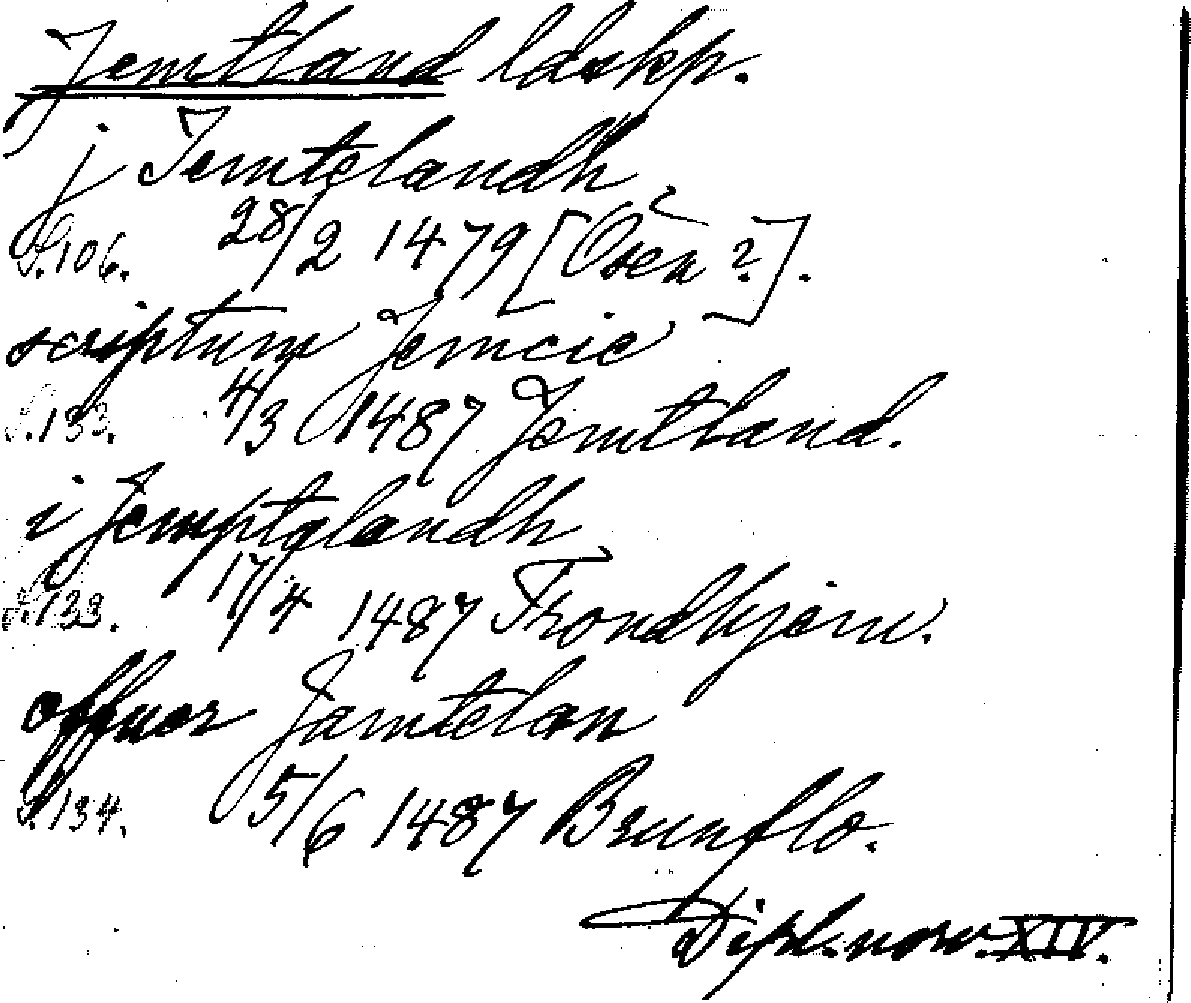 Jemtland ldskp.
j Jemtelandh
S.106. 28/2 1479 [Osen?].
scriptum Jemcie
S.133. 4/3 1487 Jemtland.
i Jemptelandh
S.133. 17/4 1487 Trondhjem.
offuer Jamtelan
S.134. 5/6 1487 Brunflo.
Dipl. norv. XIV.